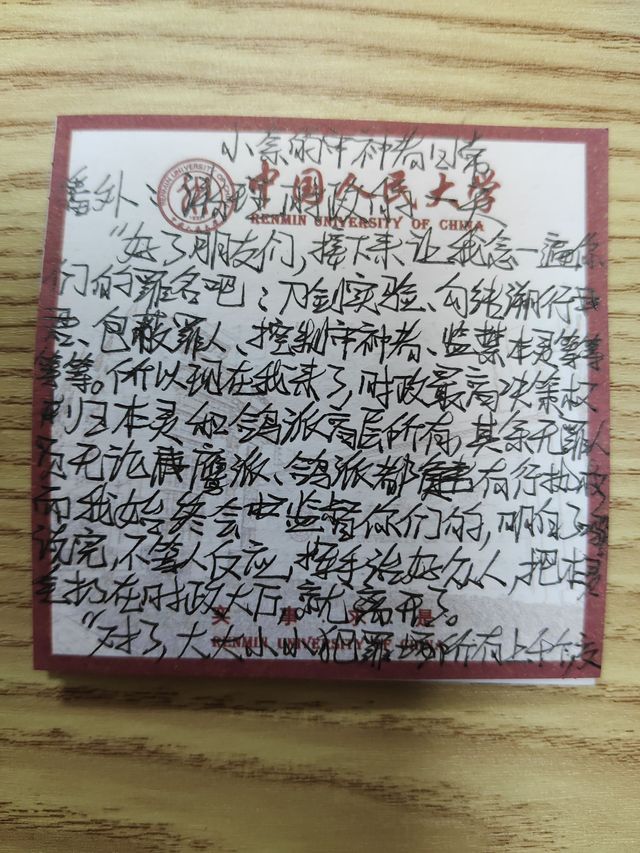 小余的审神者日常
番外：清理时政
中国人民大学
RENMIN UNIVERSITY OF CHINA
“好了朋友们，接下来让我念一遍你
们的罪名吧：刀剑实验、勾结溯行
君、包蔽罪人、控制审神者、监禁本灵等等
等等。所以现在我来了，时政最高决策权
则归本灵和鸽派高层所有，其余无罪人
员无论鹰派、鸽派都有行执政
而我始终会监督你们的，明白了
说完，不等人反应，挥手治好众人，把本灵
扔在时政大厅，就离开了。
实事求是
RENMIN UNIVERSITY OF CHINA
“对了，大大小小犯罪所有上千